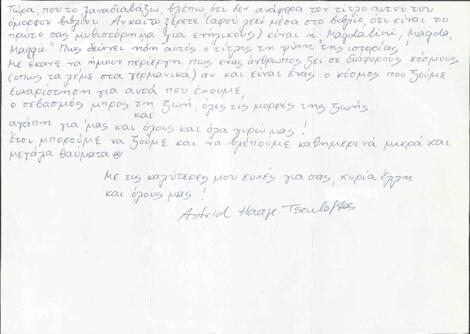 Τώρα, που το ξαναδιαβάζω, βλέπω ότι δεν ανάφερα τον τίτλο αυτού του
όμορφου βιβλίου. Αν και το ξέρετε (αφού λέει μέσα στο βιβλίο, ότι είναι το
πρώτο σας μυθιστόρημα για ενήλικους) είναι η "Magdalini, Magda,
Maggie" Πως δείχνει ήδη αυτός ο τίτλος τη ψυχή της ιστορίας!
Με έκανε να ήμουν περίεργη πως ένας άνθρωπος ζει σε διάφορους κόσμους
(όπως τα λέμε στα γερμανικά) αν και είναι ένας ο κόσμος που ζούμε.
Ευχαρίστηση για αυτά που έχουμε,
ο σεβασμός μπρος τη ζωή, όλες τις μορφές της ζωής
και
αγάπη για 'μας και όλους και όλα γύρω μας!
Έτσι μπορούμε να ζούμε και να βλέπουμε καθημερινά μικρά και
μεγάλα θαύματα
Με τις καλύτερες μου ευχές για σας, κυρία Έλλη
και όλους μας!
Astrid Haage-